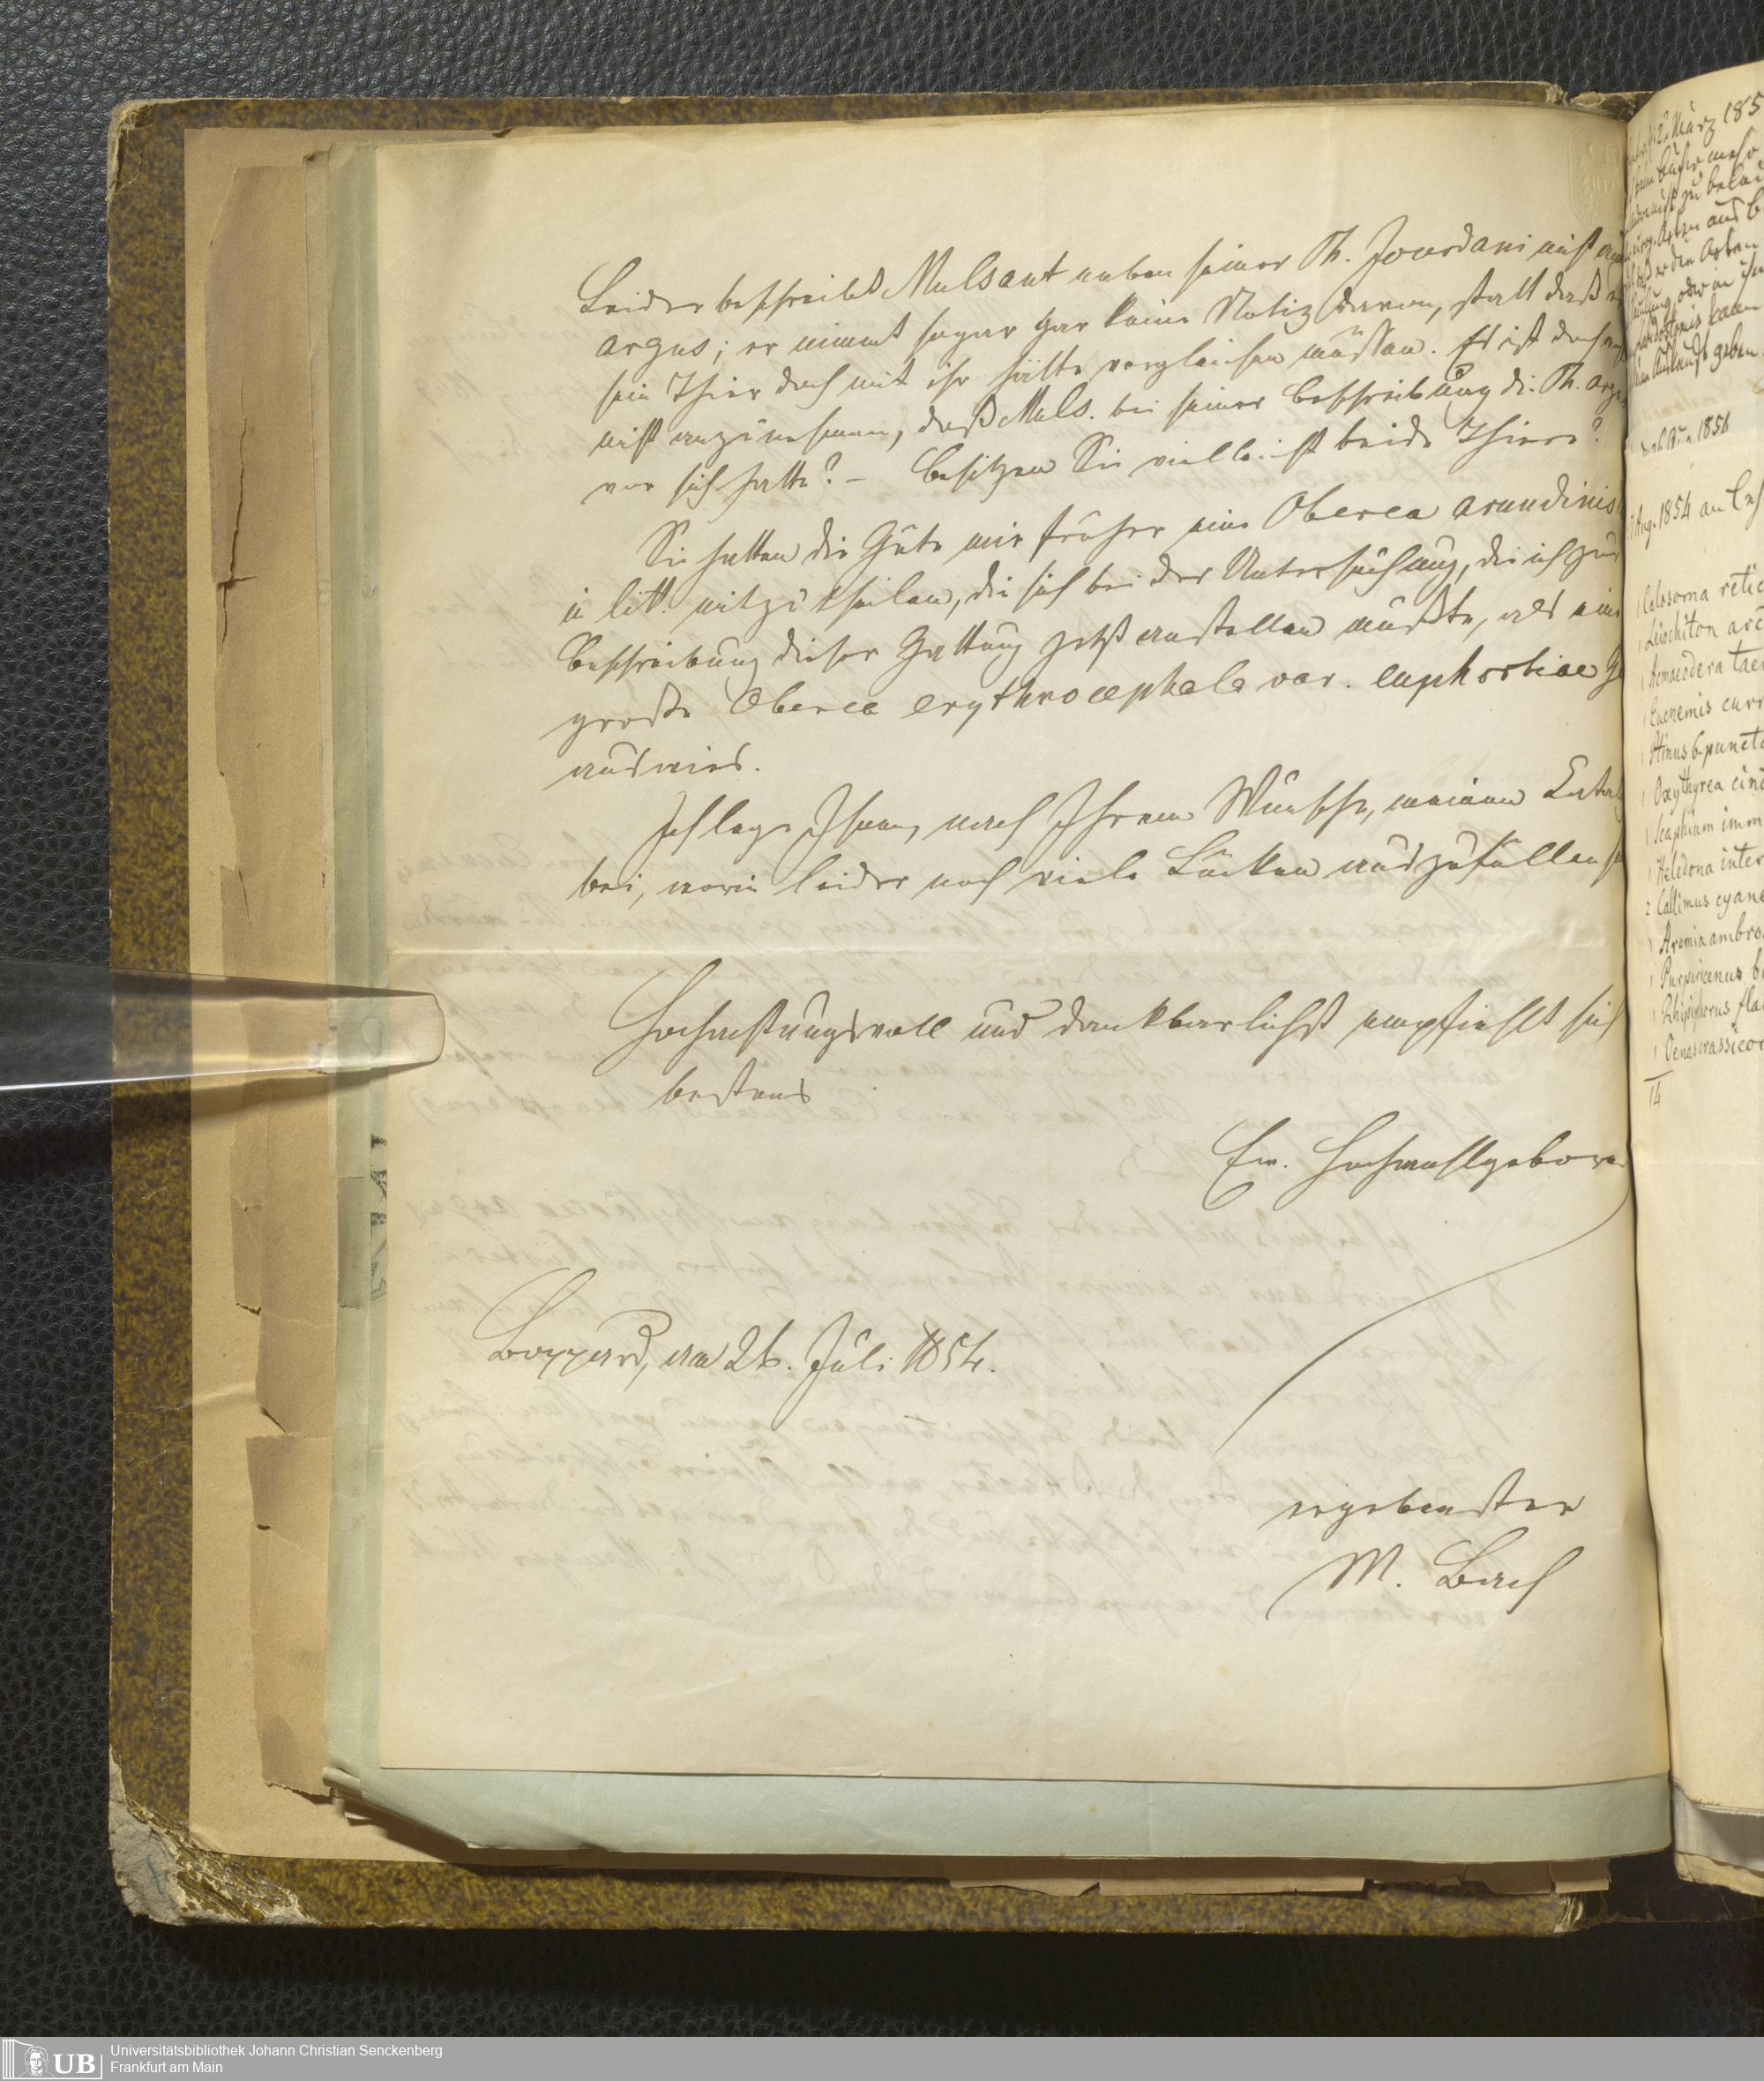 Leider beschreibt Mulsant neben seiner Th. Jourdani nicht
argus; er nimmt sogar gar keine Notiz davon, statt daß
sein Thier doch mit ihr hätte vergleichen müssen. Es ist doch
nicht anzunehmen, daß Muls. bei seiner Beschreibung die Th. arg
vor sich hatte? – Besitzen Sie vielleicht beide Thiere?
Sie hatten die Güte mir früher eine Oberea arundinis
in litt. mitzutheilen, die sich bei der Untersuchung, die ich zur
Beschreibung dieser Gattung jetzt anstellen mußte, als eine
große Oberea erythrocephala var. euphorbiae
auswies.
Ich lege Ihnen, nach Ihrem Wunsche, meinen Cata
bei, worin leider noch viele Lücken auszufüllen
Hochachtungsvoll und dankbarlichst empfiehlt sich
bestens
Ew. Hochwohlgeboren
Boppard, am 26. Juli 1854.
ergebenster
M. Bach
März 185
1856
Aug. 1854 an
1 Calosoma retic
1 Leiochiton arc
1 Acmaeodera tae
1 Eucnemis
1 Ptinus 6punct
1 Oxythyrea cinc
1 Scaphium imm
1 Heledona inter
2 Callimus cyane
1 Aromia ambro
1 Purpuricenus b
1 Rhipiphorus fla
1 Oenas crassicor
14
UB
Universitätsbibliothek Johann Christian Senckenberg
Frankfurt am Main